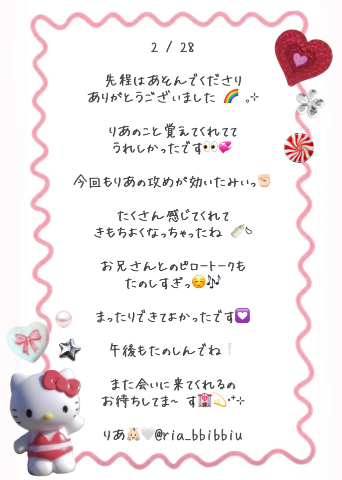 2 / 28
先程はあそんでくださり
ありがとうございました 🌈 ｡⊹
りあのこと覚えてくれてて
うれしかったです👀💞
今回もりあの攻めが効いたみぃっ✊🏻
たくさん感じてくれて
きもちよくなっちゃったね 🍼
お兄さんとのピロートークも
たのしすぎっ☺️🎶
まったりできてよかったです💟
午後もたのしんでね❕
また会いに来てくれるの
お待ちしてま~ す🏩💫
りあ👶🏻🤍@ria_bbibbiu